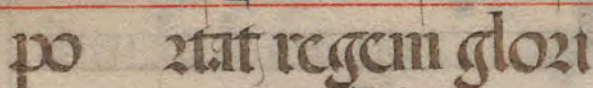 po rtat regem glori